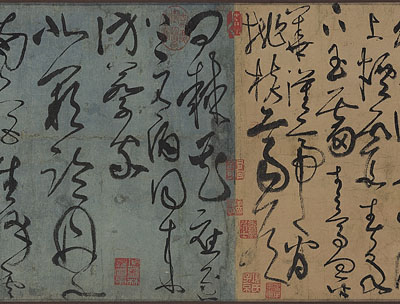 上煙霞春泉
下玉霤青鳥向金
華漢帝看
桃核齊侯
問棘花應逐
上元酒同來
訪蔡家
北闕臨丹水
南宮生絳雲